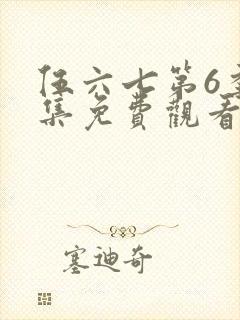 伍六七第6季
集免費觀看
塞迪奇